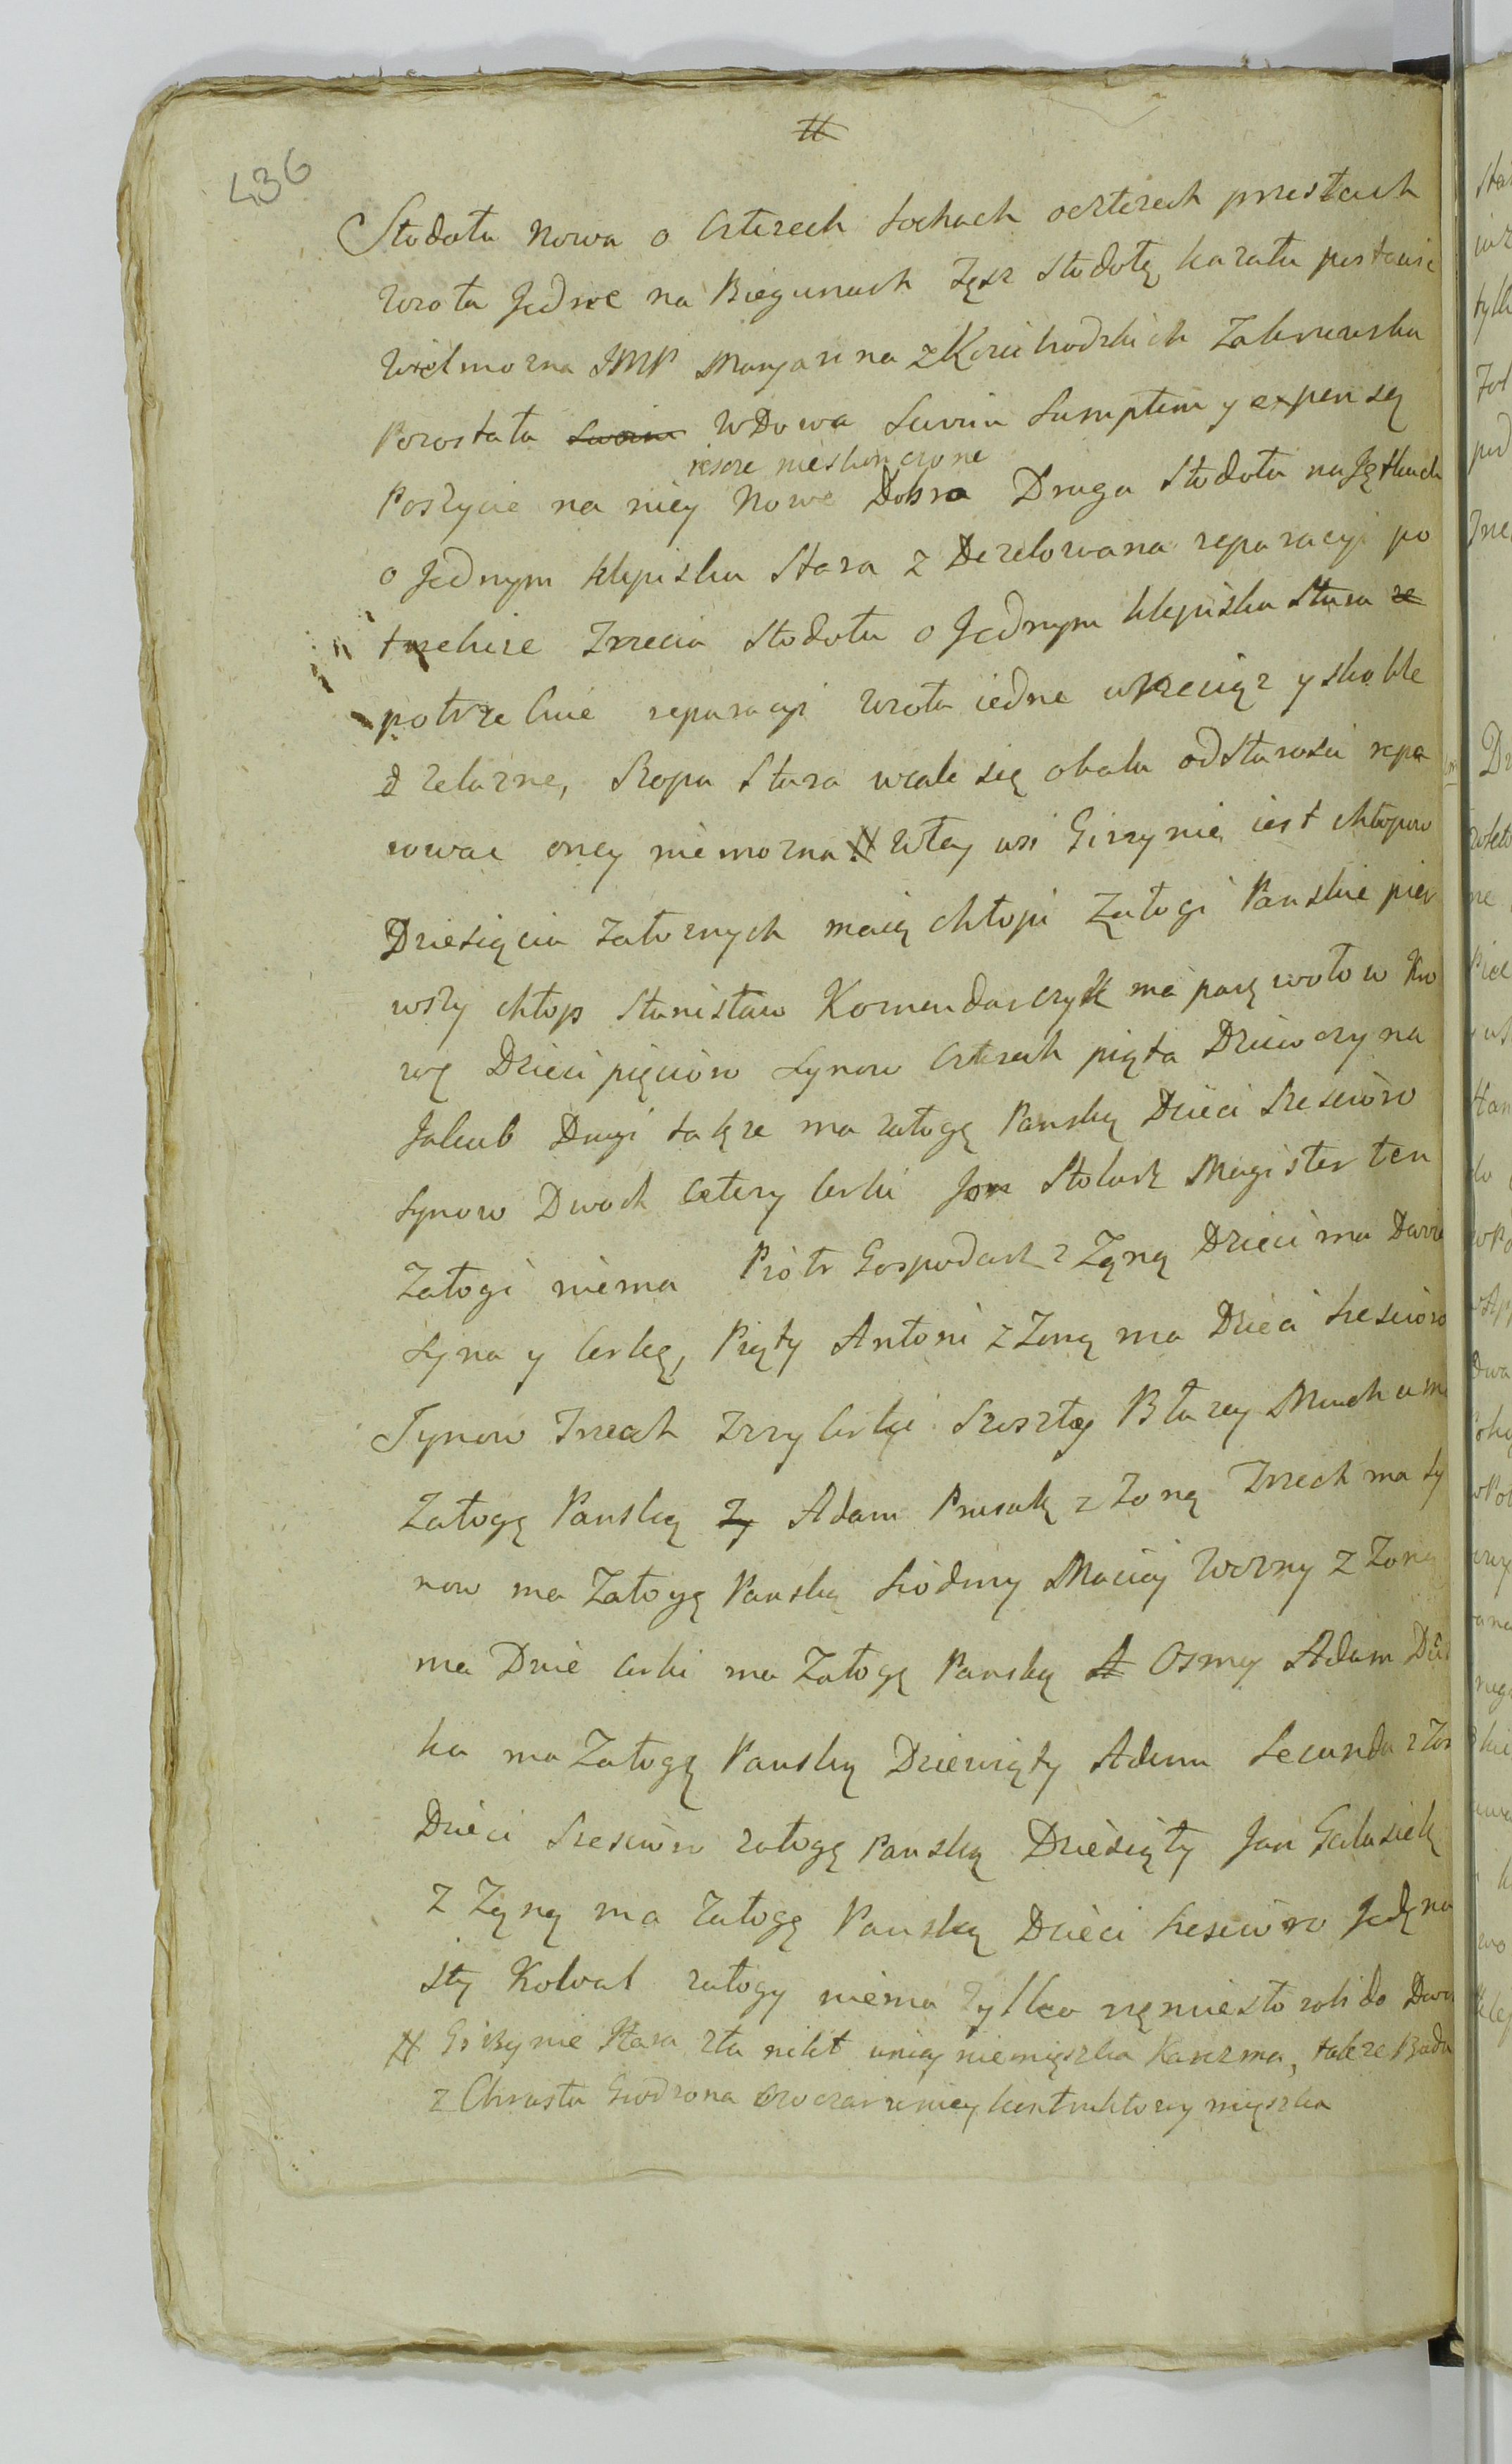 436
Stodoła Nowa o Czterech Sochach oczterech przestach
Wrota Jedne na Biegunach Tęsz Stodołę kazała postawic
Wielmozna JMP Maryanna z Zakrzewska
Pozostała Swoim Wdowa Swoim Sumptem y expensą
ieszcze nieskonczone
Poszycie na niey Nowe Dobra Druga Stodoła na
o Jednym klepisku Stara z Dezelowana reparacyi po
trzebuie Trzecia Stodoła o Jednym klepisku Stara
potrzebuie reparacyi wrota iedne wrzeciąz y skoble
zelazne, Szopa Stara wcale się obala od Starosci repe
rowac oney niemozna # Wtey wsi Girzynie iest chłopow
Dziesięciu załoznych maią chłopi Załogi Panskie pier
wszy chłop Stanisław Komendarczyk ma parę wołow Kro
wę Dzieci pięcioro Synow Czterech piąta Dziewczyna
Jakub Drugi takze ma załogę Panską Dzieci Szescioro
Synow Dwoch Cztery Corki Jan Stolarz Magister ten
Załogi niema Piotr Gospodarz z Zoną Dzieci ma Dwoie
Syna y Corkę, Piąty Antoni z Zoną ma Dzieci Szescioro
Synow Trzech Trzy Corki Szosty Błazey Mucha ma
Załogę Panską Adam Prusak z Zoną Trzech ma Sy
now ma Załogę Panską Siodmy Maciej Wozny z Zoną
ma Dwie Corki ma Załogę Panską Osmy Adam
ka ma Załogę Panską Dziewiąty Adam Secunda z Zon
Dzieci Szescioro załogę Panską Dziesiąty Jan Galasiek
z Zoną ma Załogę Panską Dzieci Szescioro Jedyna
sty Kowal załogy niema Tylko rzemiesło robi do Dwo
# Girzynie Stara zła nikt wniey niemięszka Karczma, takze Buda
z Chrusta Grodzona Owczarz wniey kontraktowy mięszka